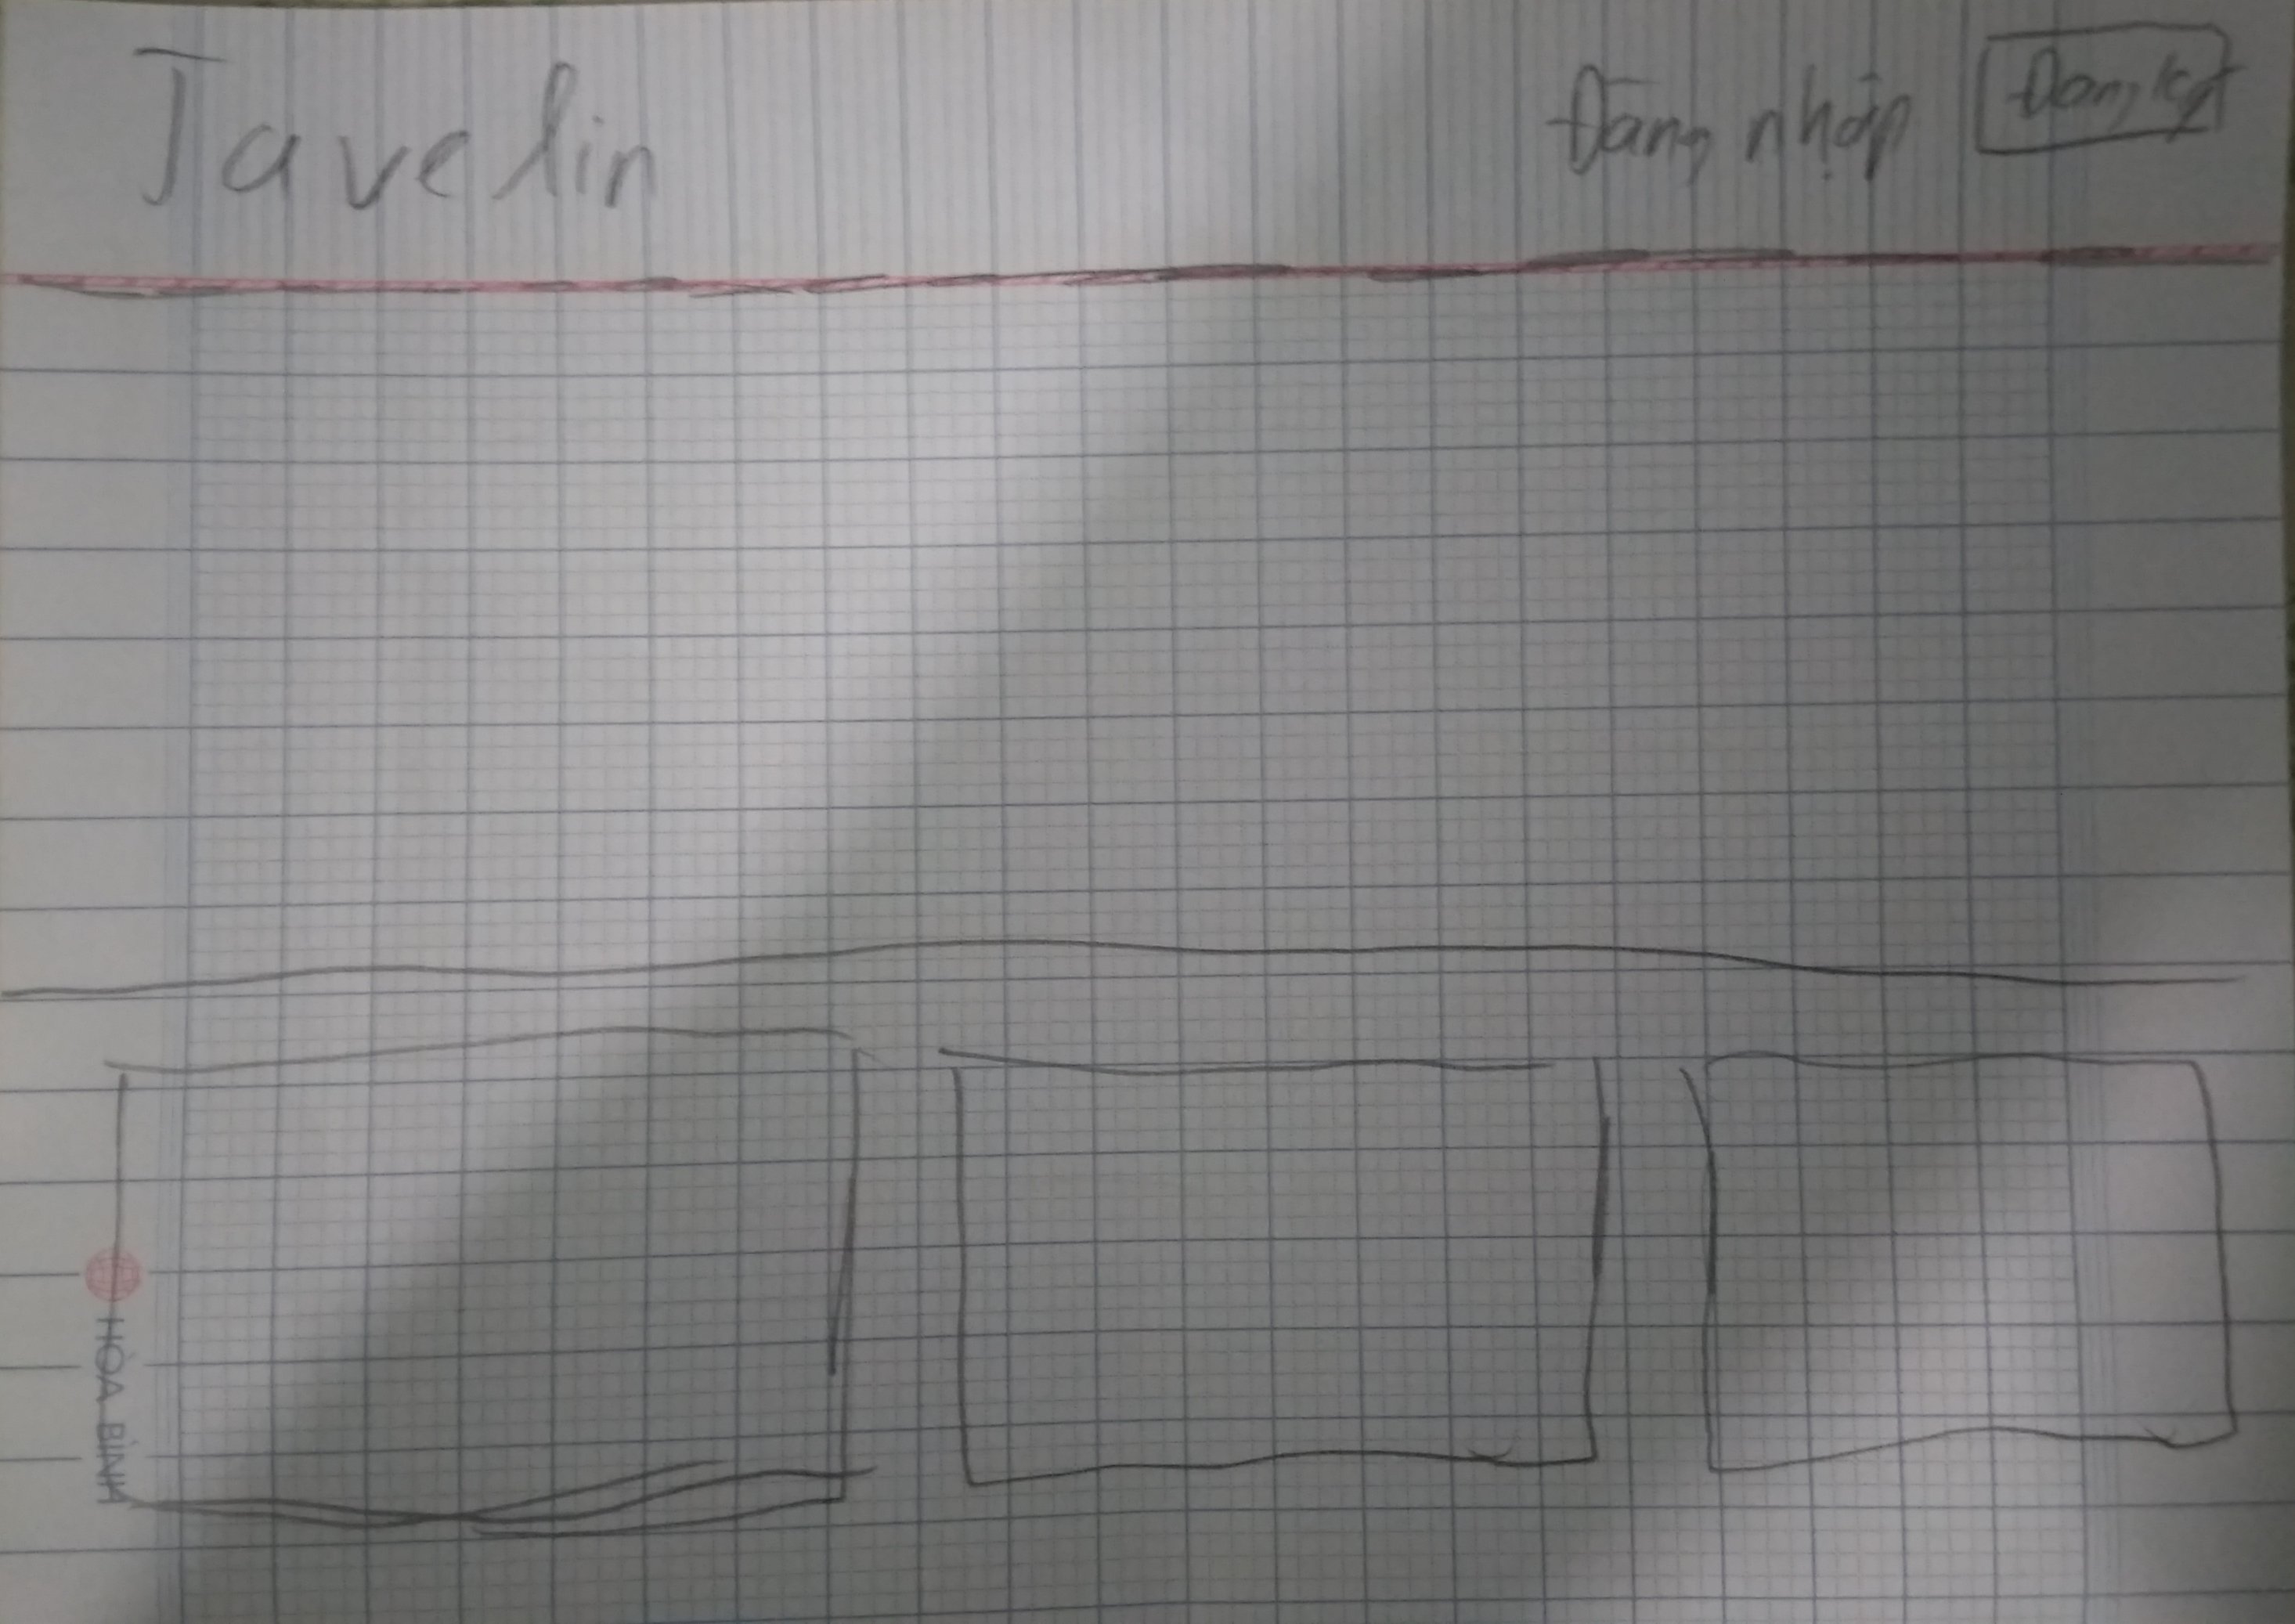 Javelin
Đăng nhập
Đăng ký
HÒA BÌNH